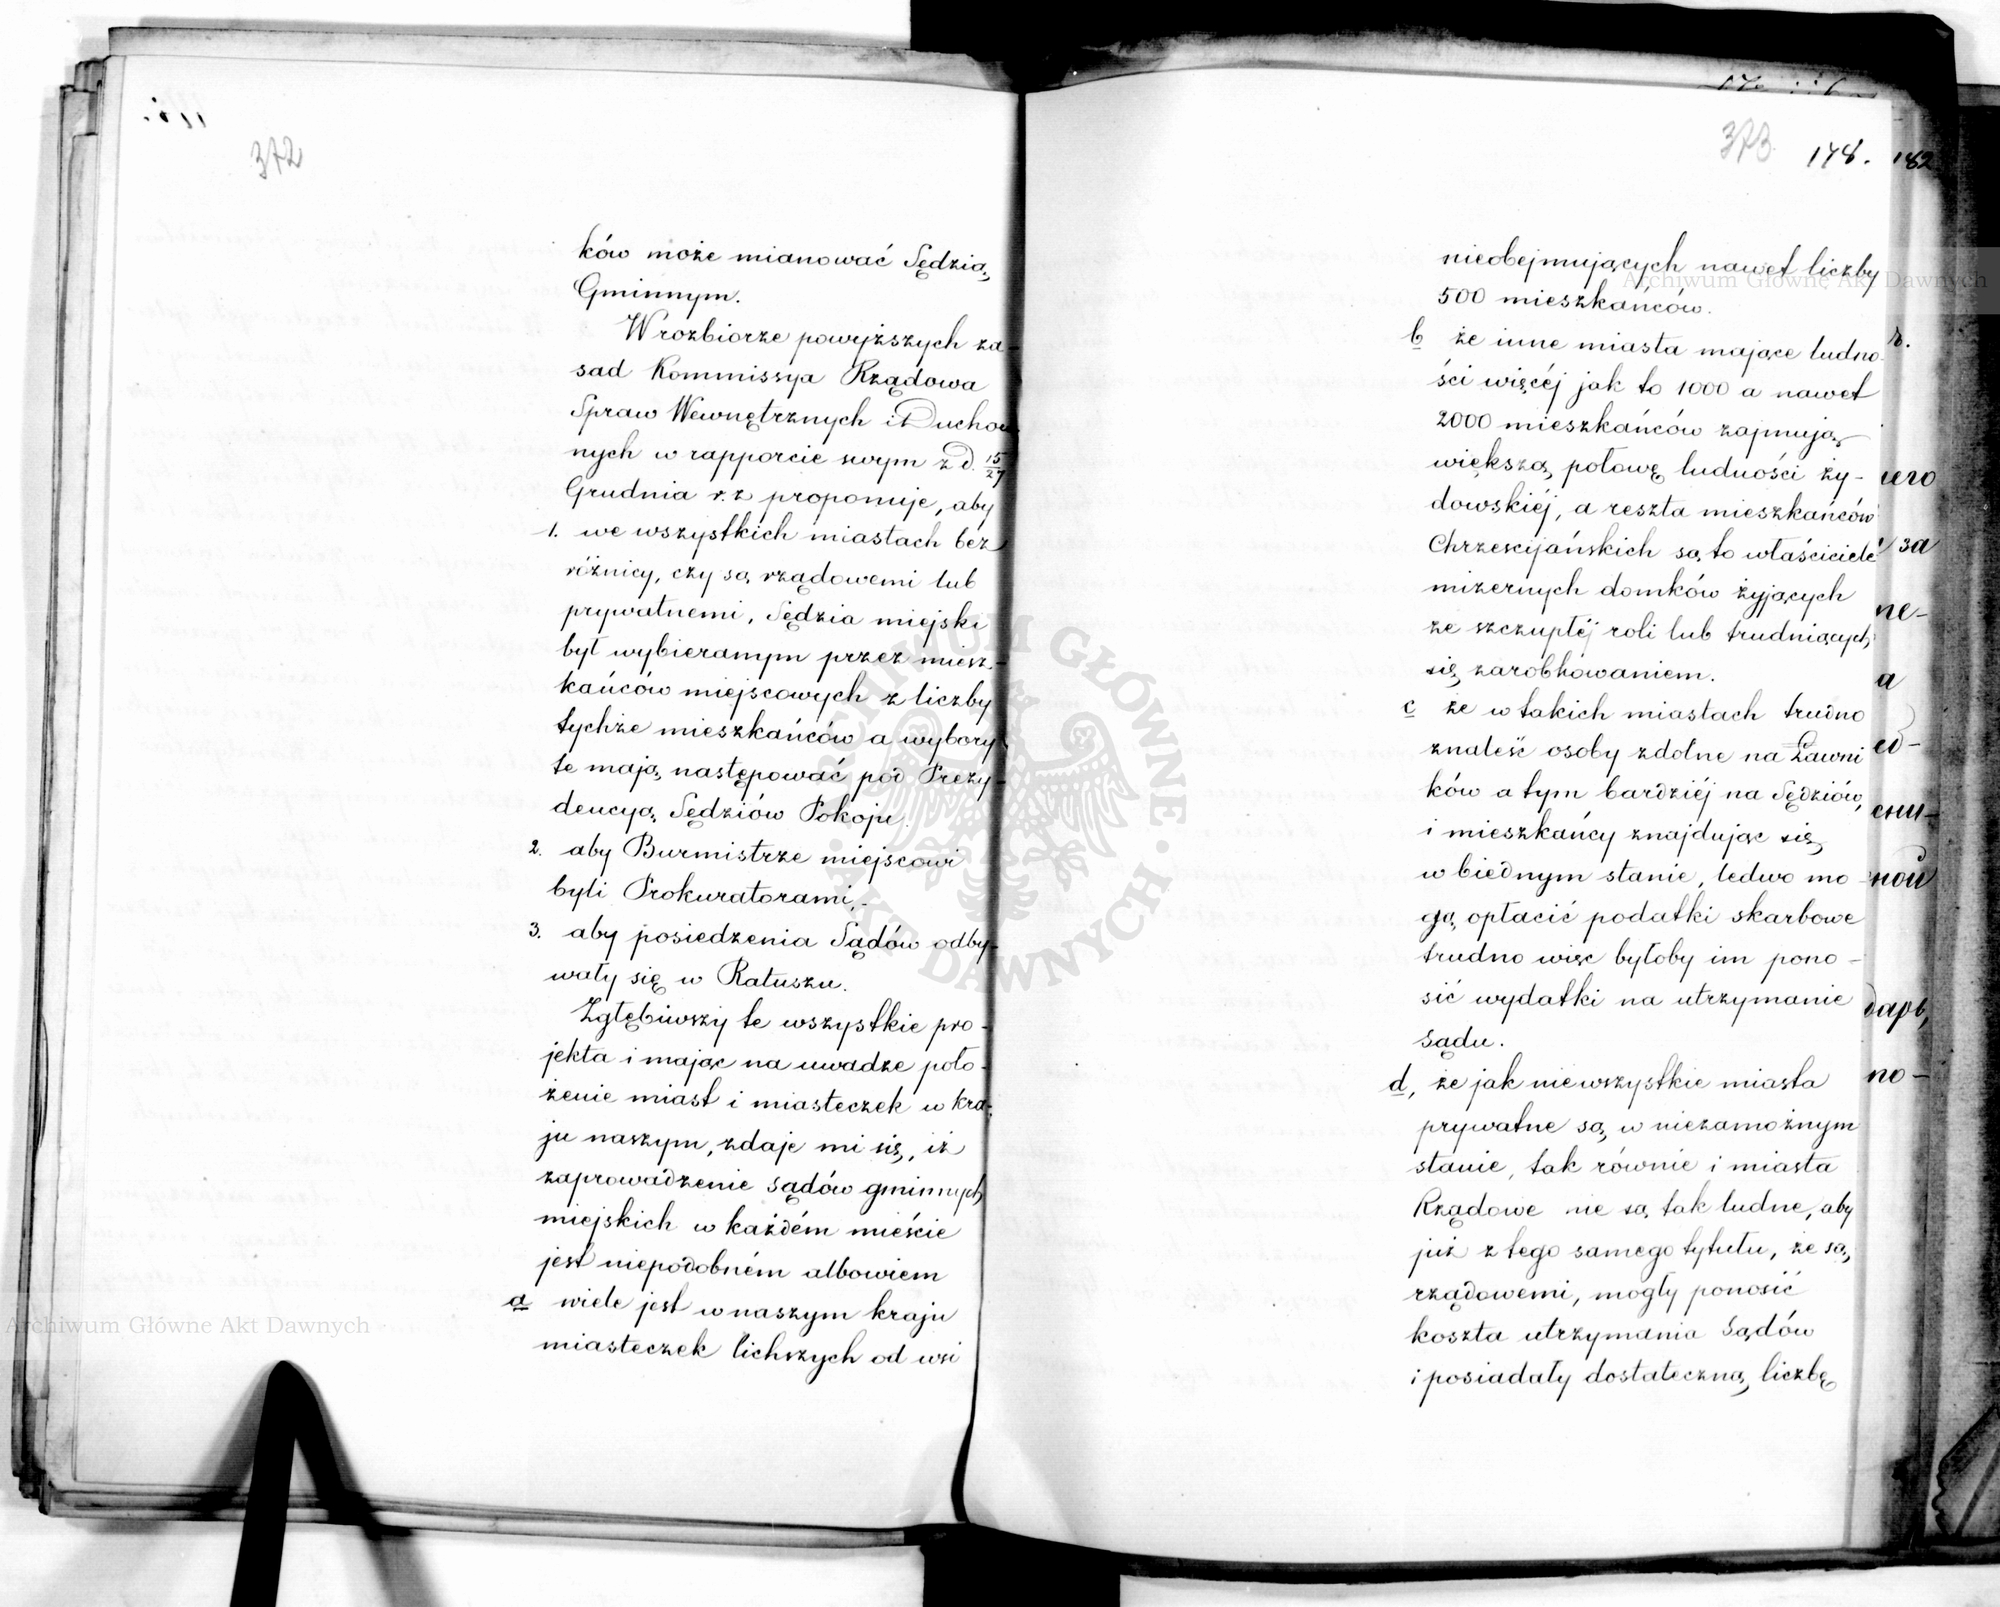 372
ków może mianować Sędzią
Gminnym.
W rozbiorze powyższych za-
sad Kommissya Rządowa
Spraw Wewnętrznych i Duchow
nych w rapporcie swym z d. 15/27
Grudnia r. z proponuje, aby
1. we wszystkich miastach bez
różnicy, czy są rządowemi lub
prywatnemi, Sędzia miejski
był wybieranym przez miesz-
kańców miejscowych z liczby
tychże mieszkańców a wybory
te mają następować pod Prezy-
dencyą Sędziów Pokoju.
2. aby Burmistrze miejscowi
byli Prokuratorami,-
3. aby posiedzenia Sądów odby-
wały się w Ratuszu.
Zgłębiwszy te wszystkie pro-
jekta i mając na uwadze poło-
żenie miast i miasteczek w kra-
ju naszym, zdaje mi się, iż
zaprowadzenie sądów gminnych
miejskich w każdém mieście
jest niepodobném albowiem
a wiele jest w naszym kraju
miasteczek lichszych od wsi
373 178. 182
nieobejmujących nawet liczby
500 mieszkańców.
b że inne miasta mające ludno-
ści więcéj jak to 1000 a nawet
2000 mieszkańców zajmują
większą połowę ludności ży-
dowskiéj, a reszta mieszkańców
Chrzescijańskich są to właściciele
mizernych domków żyjących
ze szczupłéj roli lub trudniących
się zarobkowaniem.
c że w takich miastach trudno
znaleść osoby zdolne na Ławni
ków a tym bardziéj na Sędziów,
i mieszkańcy znajdując się
w biednym stanie, ledwo mo-
gą opłacić podatki skarbowe
trudno więc byłoby im pono-
sić wydatki na utrzymanie
sądu.
d, że jak nie wszystkie miasta
prywatne są w niezamożnym
stanie, tak równie i miasta
Rządowe nie są tak ludne, aby
już z tego samego tytułu, że są
rządowemi, mogły ponosić
koszta utrzymania Sądów
i posiadały dostateczną liczbę
за
не-
а
ной
но-
Archiwum Główne Akt Dawnych
Archiwum Główne Akt Dawnych
ARCHIWUM GŁÓWNE · AKT DAWNYCH ·